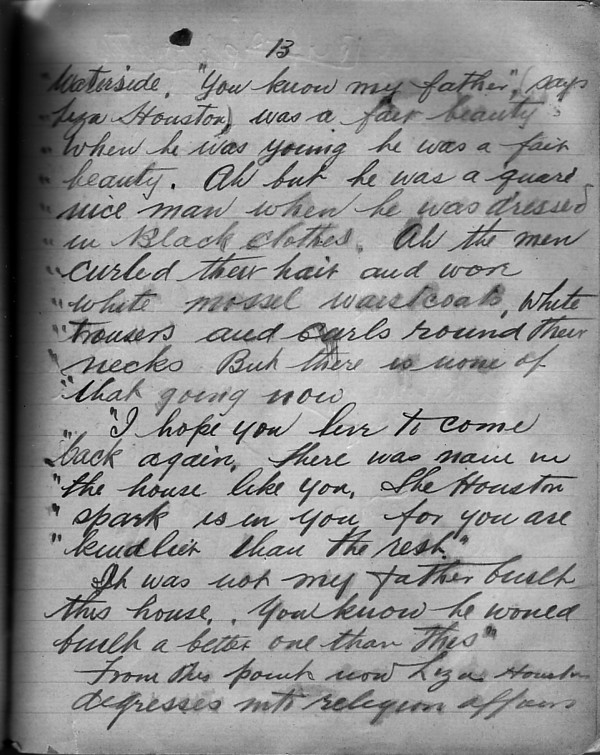 13
Waterside. "You know my father", (says
" Liza Houston) was a fair beauty
" when he was young he was a fair
" beauty. Ah but he was a quare
" nice man when he was dressed
" in Black clothes. Ah the men
" curled their hair and wore
" white mossel waistcoats, white
" trousers and curls round their
" necks But there is none of
" that going now
"I hope you live to come
" back again. There was nain in
" the house like you. The Houston
" spark is in you for you are
" kindlier than the rest."
It was not my father built
this house. You know he would
built a better one than this"
From this point now Liza Houston
degresses into relegion affairs